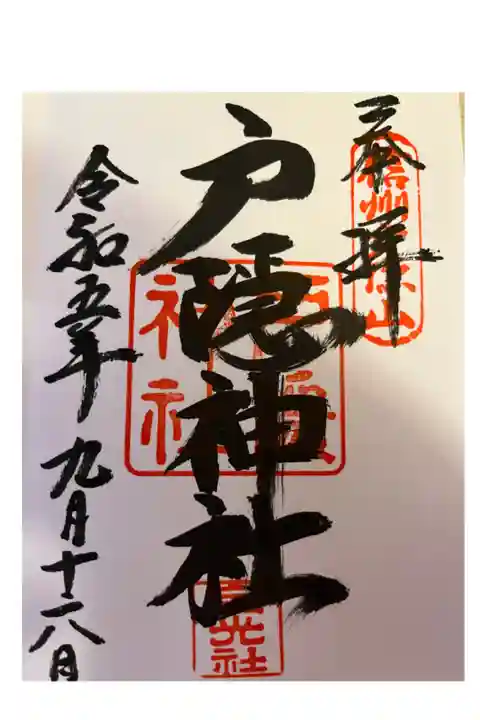 奉拝
信州戸隠山
戸隠神社
戸隠神社
宝光社
令和五年九月十八日